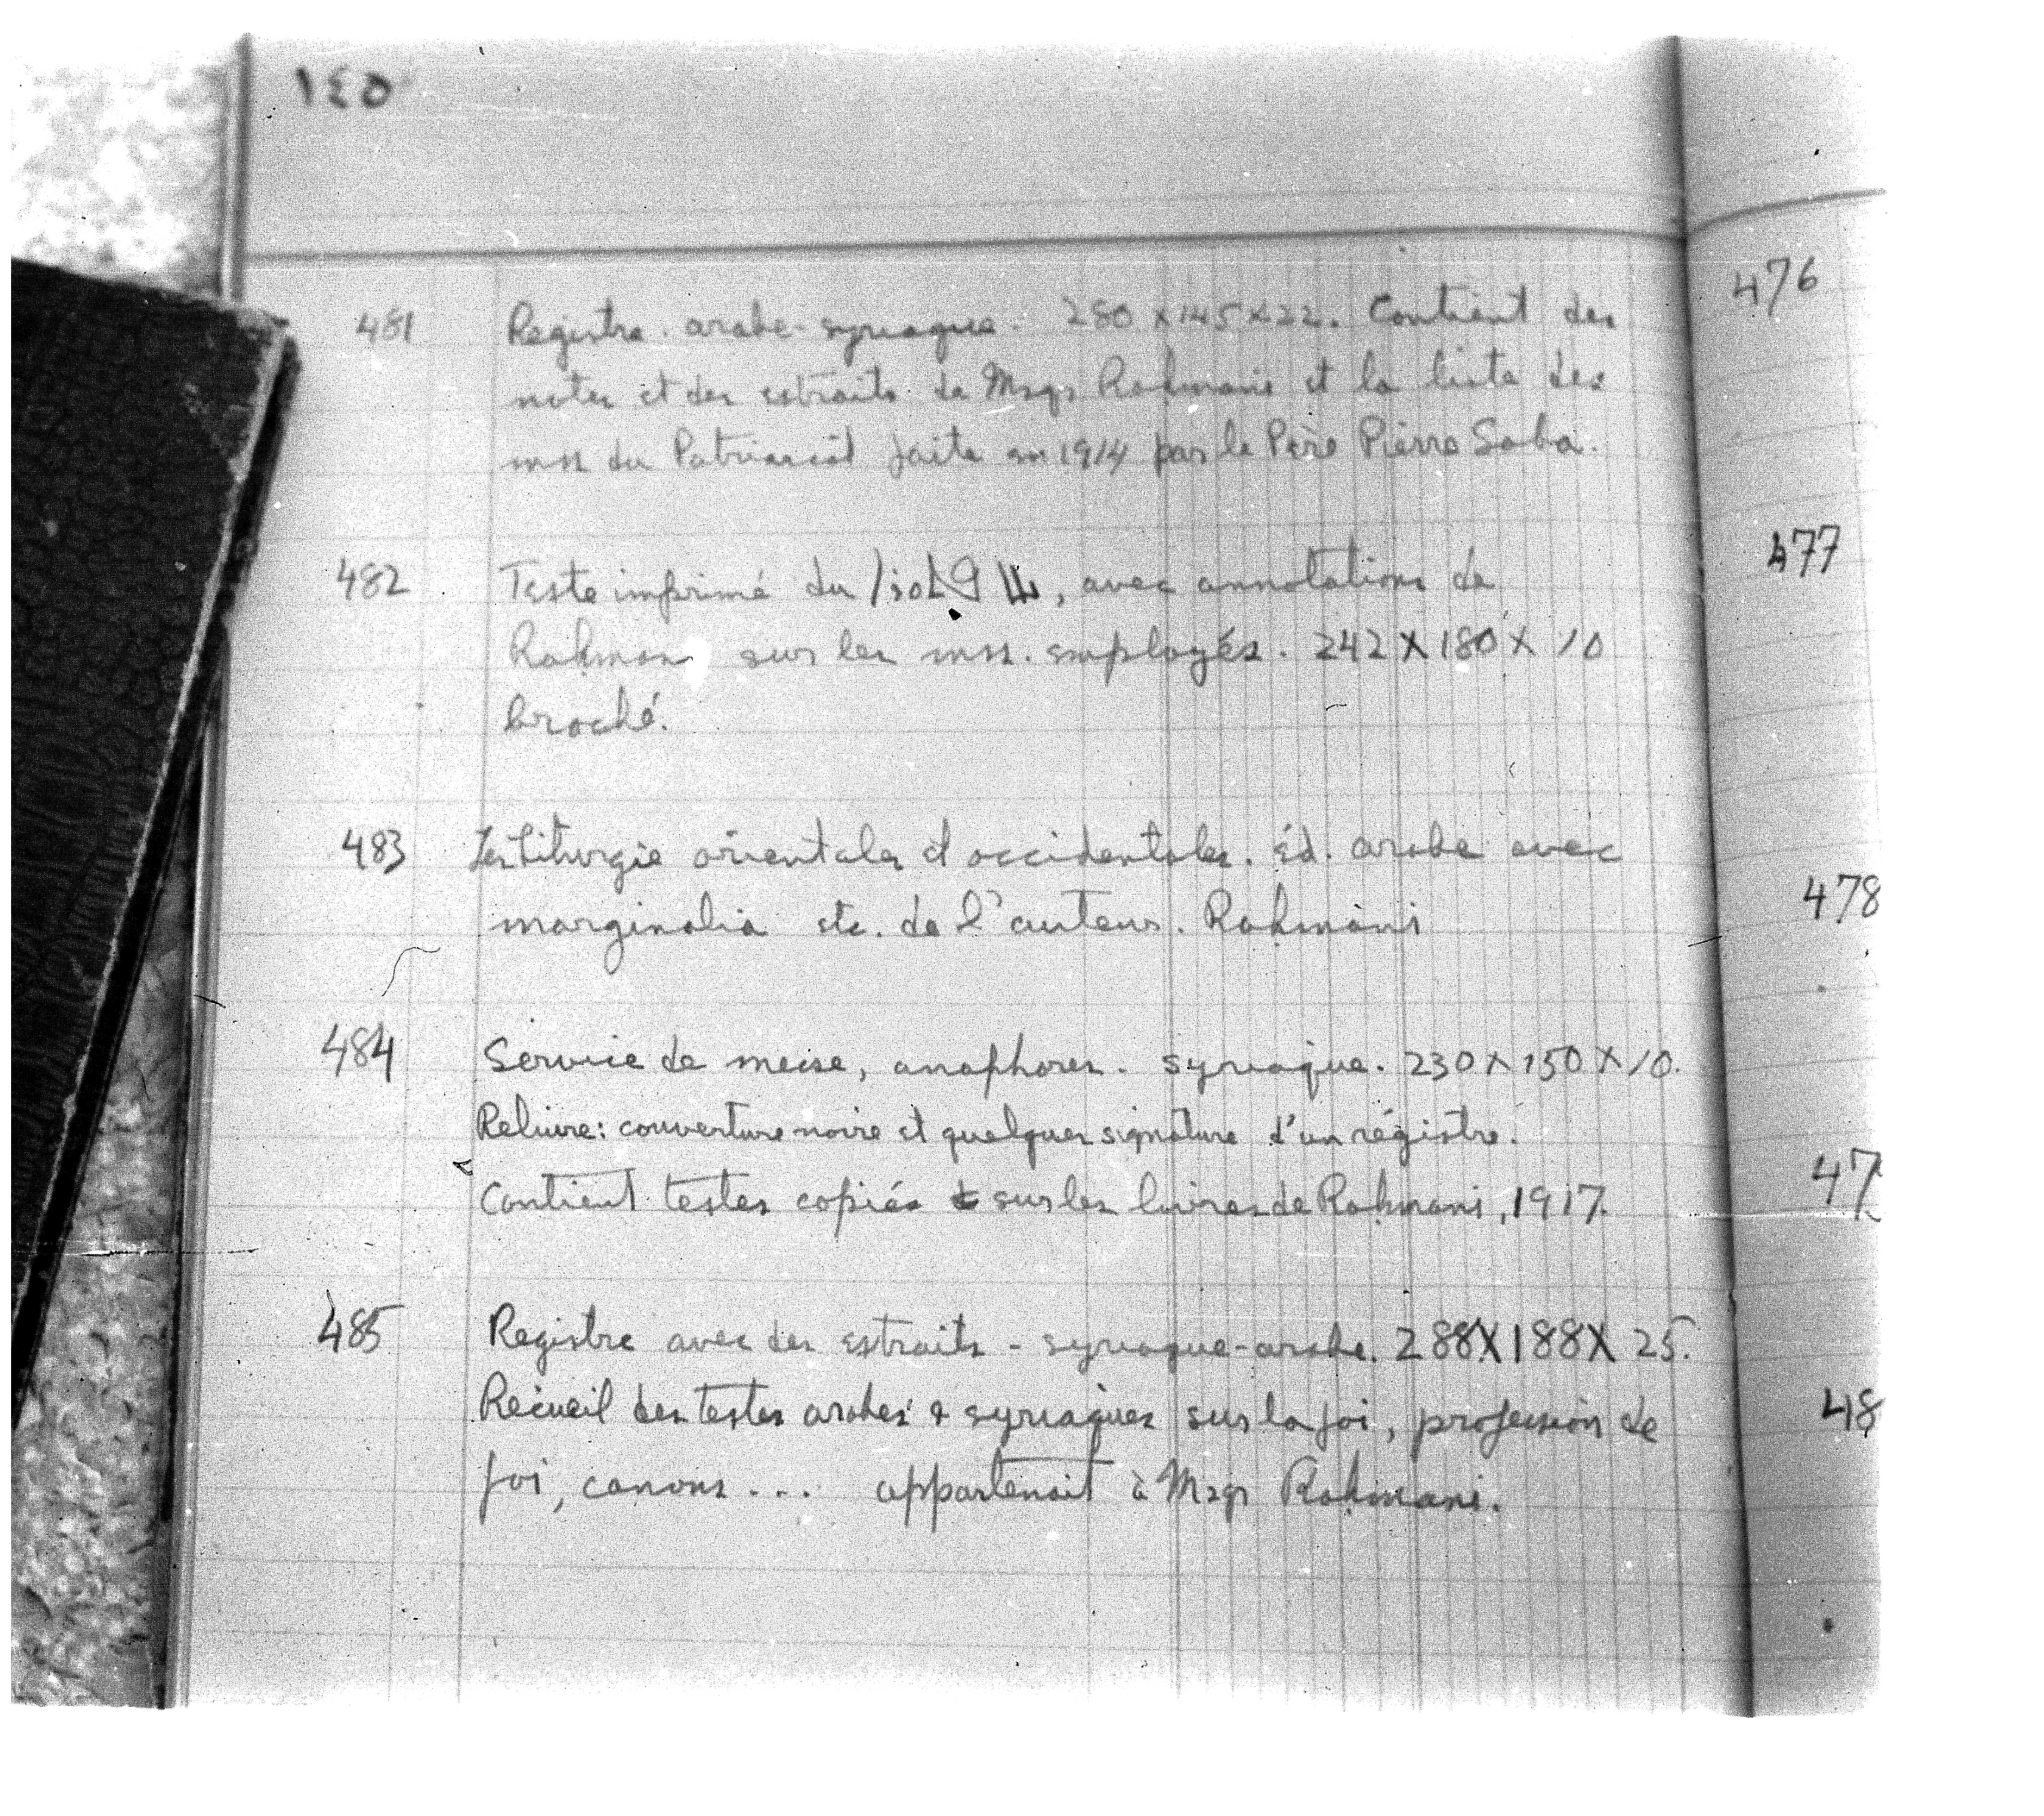 ١٤٥
481 Registre. arabe-syriaque. 280 x 145 x 22. Contient des
notes et des estraits de Msgr Rahmani et la liste des
mss du Patriarcat faite en 1914 par le Père Pierre Saba.
482 Teste imprimé du , avec annotations de
Raḥmani sur les mss. employés. 242 X 180 X 10
broché.
483 Les Liturgie orientales et occidentales. éd. arabe avec
marginalia etc. de l'auteur. Raḥmani
484 Service de messe, anaphores. syriaque. 230 X 150 X 10.
Reliure: couverture noire et quelques signature d'un régistre.
Contient testes copiés sur les livres de Raḥmani, 1917.
485 Registre avec des estraits - syriaque-arabe. 288 X 188 X 25.
Recueil des testes arabes & syriaques sur la foi, profession de
foi, canons... appartenait à Msgr Raḥmani.
476
477
478
47
48